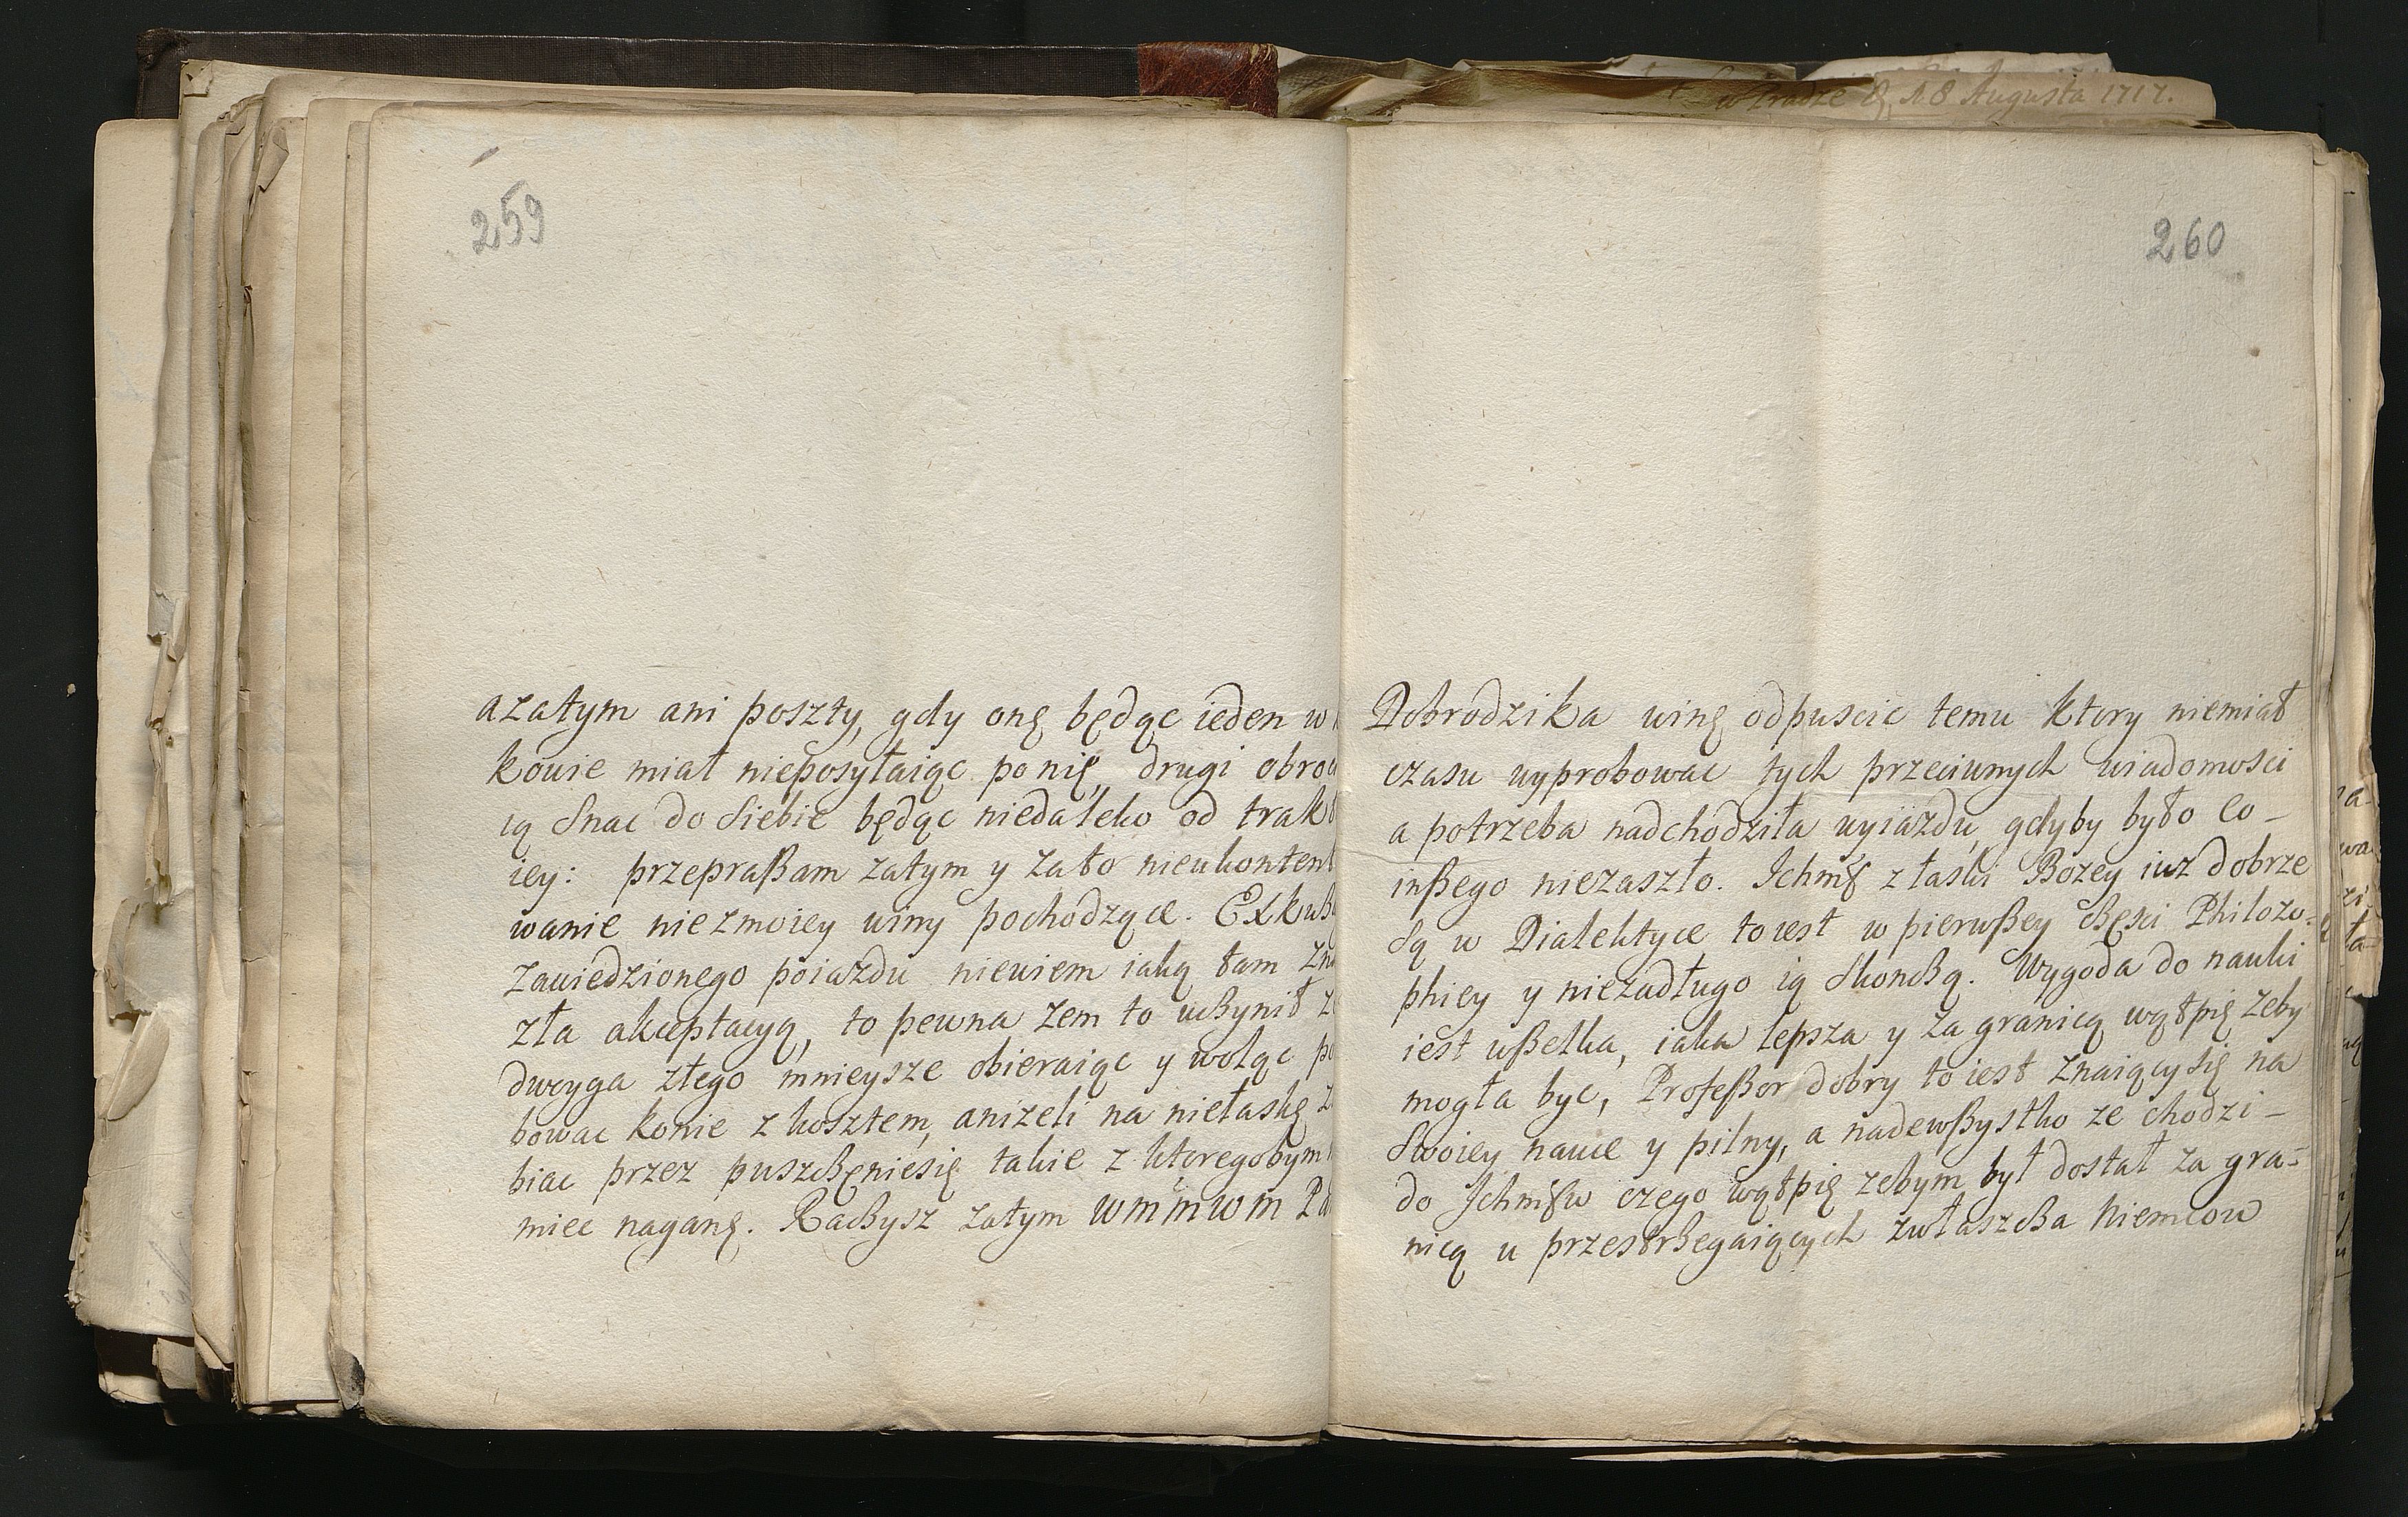 w Pradze d. 18 Augusta 1717.
259
azatym ani poszty, gdy onę będąc ieden w
kowie miał nieposyłaiąc ponię, drugi obro
ią snac do siebie będąc niedaleko od trak
iey: przepraßam zatym y zato nieukonten
wanie niezmoiey winy pochodzące. Exkuß
zawiedzionego poiazdu niewiem iaką tam
zła akceptacyą, to pewna zem to uczynił
dwoyga złego mnieysze obieraiąc y woląc
bowac konie z kosztem, anizeli na niełaskę
biac przez puszczęniesię takie z ktoregobym
miec naganę. Raczysz zatym WMMWM
260
Dobrodzika winę odpuscic temu ktory niemiał
czasu wyprobowac tych przeciwnych wiadomosci
a potrzeba nadchodziła wyiazdu, gdyby było co-
inßego niezaszło. Ichmß z łaski Bozey iuz dobrze
są w Dialektyce toiest w pierwßey częsci Philozo-
phiey y niezadługo ią skonczą. Wygoda do nauki
iest wßelka, iaka lepsza y za granicą wątpię zeby
mogła byc, Profeßor dobry to iest znaiącysię na
swoiey nauce y pilny, a nadewßystko ze chodzi-
do Ichmßw czego wątpię zebym był dostał za gra-
nicą u przestrzegaiących zwłaszcza Niemcow